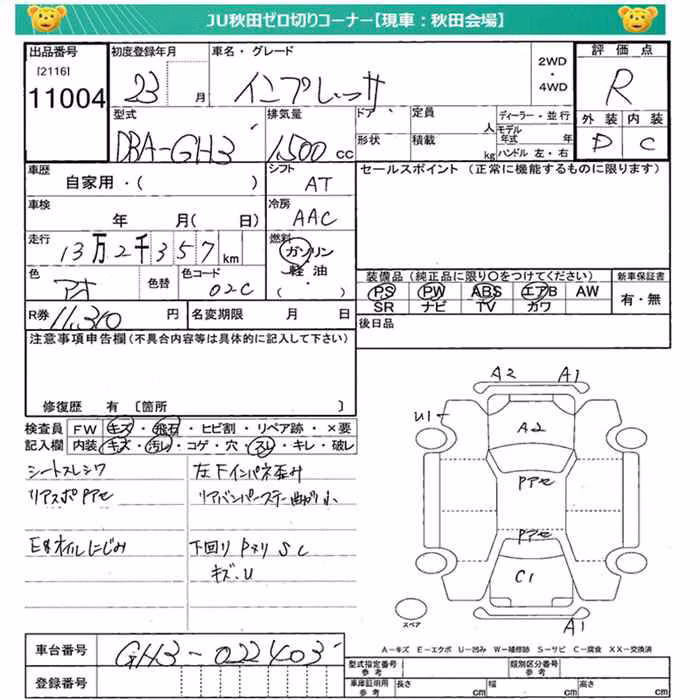 JU秋田ゼロ切りコーナー【現車：秋田会場】
出品番号 初度登録年月 車名・グレード 評価点
[2116] 2WD
11004 23 月 インプレッサ ・4WD R
型式 排気量 ドア 定員 ディーラー・並行 外装 内装
DBA-GH3 1500 cc 形状 積載 人 kg モデル年式 年 ハンドル 左・右 D C
車歴 シフト セールスポイント（正常に機能するものに限ります）
自家用・（ ） AT
車検 冷房
年 月（ 日） AAC
走行 燃料
13万2千357 km ガソリン
色 色替 色コード 軽油・
アオ 02C （ ）
装備品（純正品に限り○をつけてください） 新車保証書
PS PW ABS エアB AW 有・無
SR ナビ TV カワ
R券 11,310 円 名変期限 月 日 後日品
注意事項申告欄（不具合内容等は具体的に記入して下さい）
修復歴 有 〔箇所 〕
検査員 FW キズ・飛石・ヒビ割・リペア跡・×要
記入欄 内装 キズ・汚レ・コゲ・穴・スレ・キレ・破レ
シートスレシワ 左下インパネ歪み
リアスポPアセ リアバンパーステー曲がり小
E型オイルにじみ 下回りPメリ S C
キズ・U
A2 A1
U1
A2
Pアセ
Pアセ
C1
A1
スペア
A－キズ E－エクボ U－凹み W－補修跡 S－サビ C－腐食 XX－交換済
車台番号 GH3-022403
登録番号
型式指定番号 参考 類別区分番号 参考
車庫証明用 参考 長さ cm 幅 cm 高さ cm